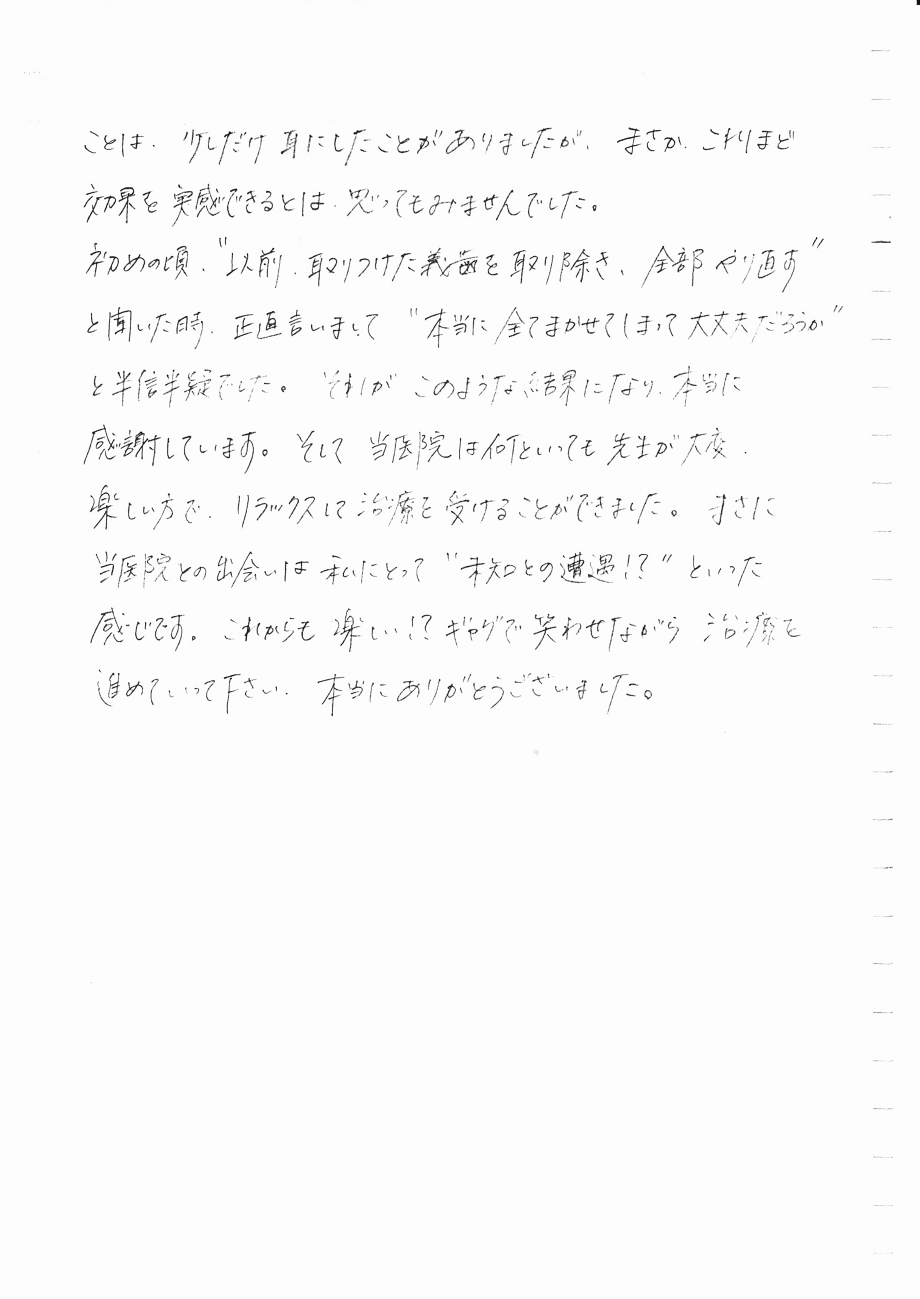 ことは、少しだけ耳にしたことがありましたが、まさか、これほど
効果を実感できるとは、思ってもみませんでした。
初めの頃、"以前、取りつけた義歯を取り除き、全部やり直す"
と聞いた時、正直言いまして"本当に全てまかせてしまって大丈夫だろうか"
と半信半疑でした。それがこのような結果になり、本当に
感謝しています。そして当医院は何といっても先生が大変、
楽しい方で、リラックスして治療を受けることができました。まさに
当医院との出会いは私にとって"未知との遭遇!?"といった
感じです。これからも楽しい!?ギャグで笑わせながら治療を
進めていって下さい。本当にありがとうございました。